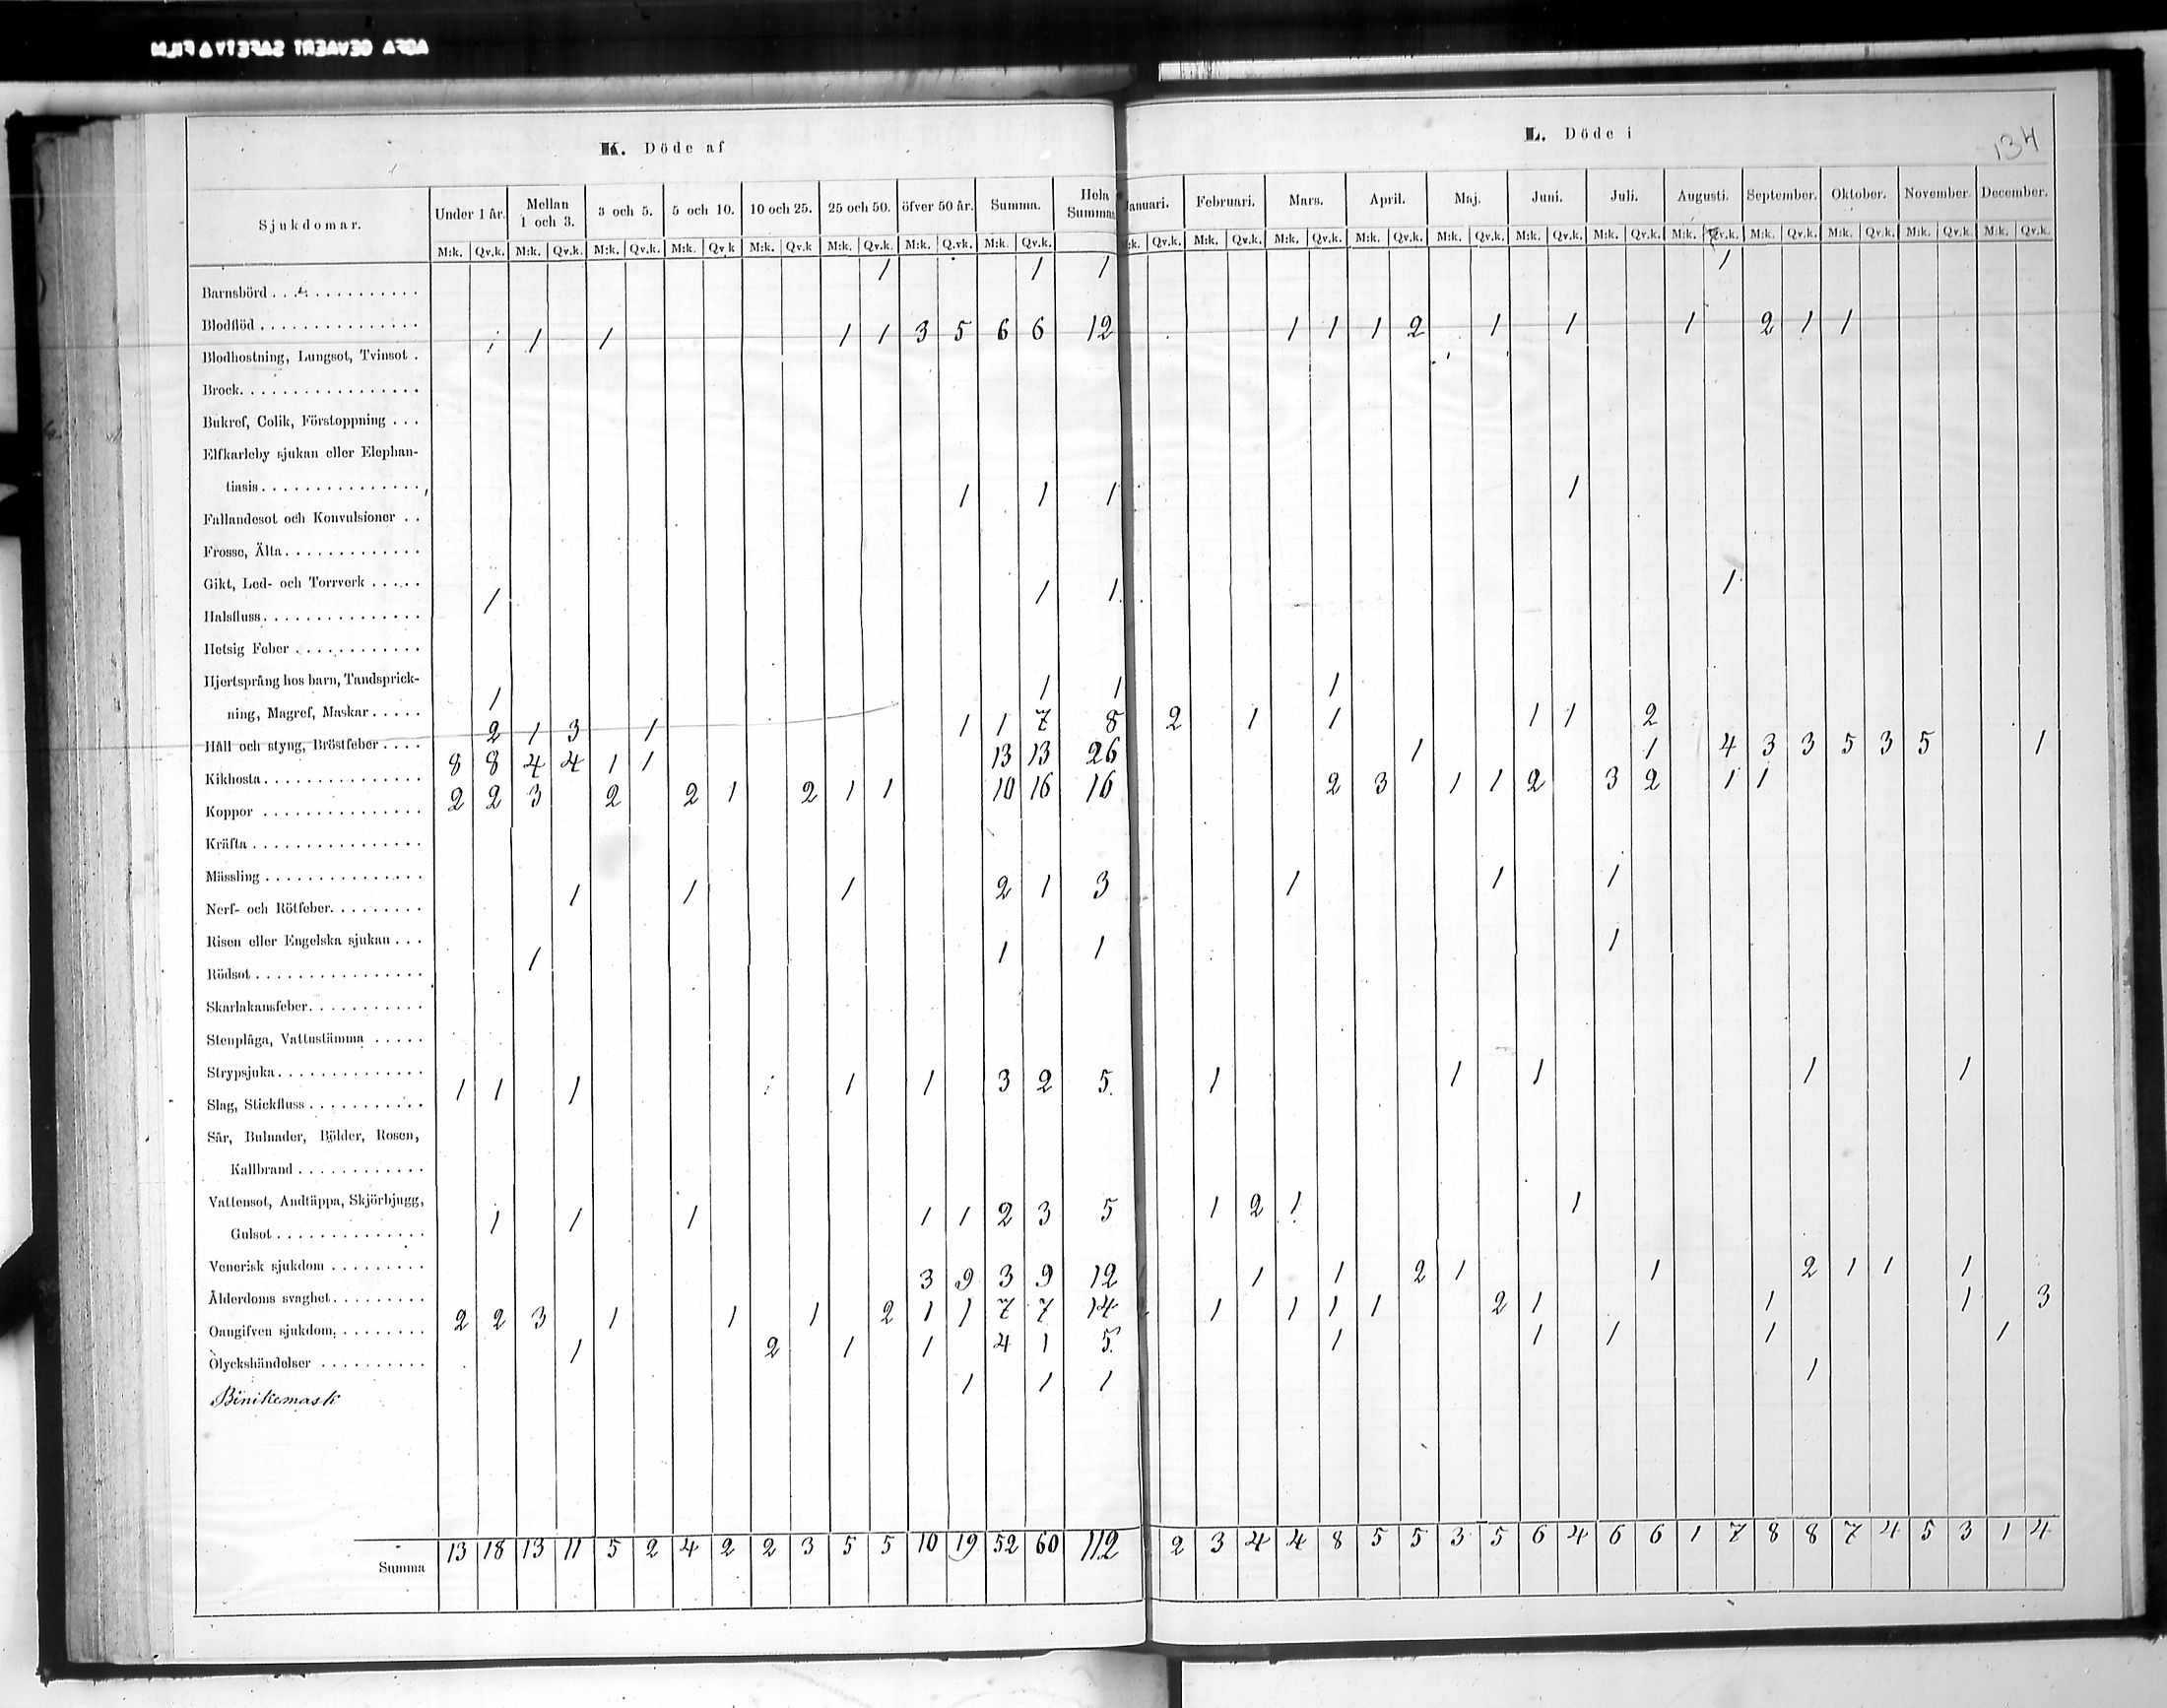 AGFA GEVAERT SAFETY FILM
K. Döde af
L. Döde i
134
Sjukdomar. Under 1 år. Mellan 1 och 3. 3 och 5. 5 och 10. 10 och 25. 25 och 50. öfver 50 år. Summa. Hela Summan Januari. Februari. Mars. April. Maj. Juni. Juli. Augusti. September. Oktober. November. December.
M:k. Qv.k. M:k. Qv.k. M:k. Qv.k. M:k. Qv.k M:k. Qv.k M:k. Qv.k. M:k. Q.vk. M:k. Qv.k. M:k. Qv.k. M:k. Qv.k M:k. Qv.k. M:k. Qv.k. M:k. Qv.k. M:k. Qv.k. M:k. Qv.k. M:k. Qv.k. M:k. Qv.k. M:k. Qv.k. M:k. Qv.k. M:k. Qv.k.
Barnsbörd . . . 1 1 1 1
Blodflöd . . .
Blodhostning, Lungsot, Tvinsot . 1 1 1 1 1 3 5 6 6 12 1 1 1 2 1 1 1 2 1 1
Brock. . . .
Bukref, Colik, Förstoppning . . .
Elfkarleby sjukan eller Elephan-
tiasis . . .
Fallandesot och Konvulsioner . . 1 1 1 1
Frosso, Älta . . .
Gikt, Led- och Torrverk . . .
Halsfluss . . . 1 1 1 1
Hetsig Feber . . .
Hjertsprång hos barn, Tandsprick-
ning, Magref, Maskar . . . 1 1 1 1
Håll och styng, Bröstfeber . . . 2 1 3 1 1 1 7 8 2 1 1 1 1 2
Kikhosta . . . 8 8 4 4 1 1 13 13 26 1 1 4 3 3 5 3 5 1
Koppor . . . 2 2 3 2 2 1 2 1 1 10 16 16 2 3 1 1 2 3 2 1 1
Kräfta . . .
Mässling . . .
Nerf- och Rötfeber. . . . 1 1 1 2 1 3 1 1 1
Risen eller Engelska sjukan . . .
Rödsot . . . 1 1 1 1
Skarlakansfeber. . . .
Stenplåga, Vattustämma . . .
Strypsjuka . . .
Slag, Stickfluss . . . 1 1 1 1 1 3 2 5 1 1 1 1 1
Sår, Bulnader, Bölder, Rosen,
Kallbrand . . .
Vattensot, Andtäppa, Skjörbjugg,
Gulsot . . . 1 1 1 1 1 2 3 5 1 2 1 1
Venerisk sjukdom . . .
Ålderdoms svaghet . . . 3 9 3 9 12 1 1 2 1 1 2 1 1 1
Oangifven sjukdom, . . . 2 2 3 1 1 1 2 1 1 7 7 14 1 1 1 1 2 1 1 1 3
Olyckshändelser . . . 1 2 1 1 4 1 5 1 1 1 1 1
Binikemask 1 1 1 1
Summa 13 18 13 11 5 2 4 2 2 3 5 5 10 19 52 60 112 2 3 4 4 8 5 5 3 5 6 4 6 6 1 7 8 8 7 4 5 3 1 4